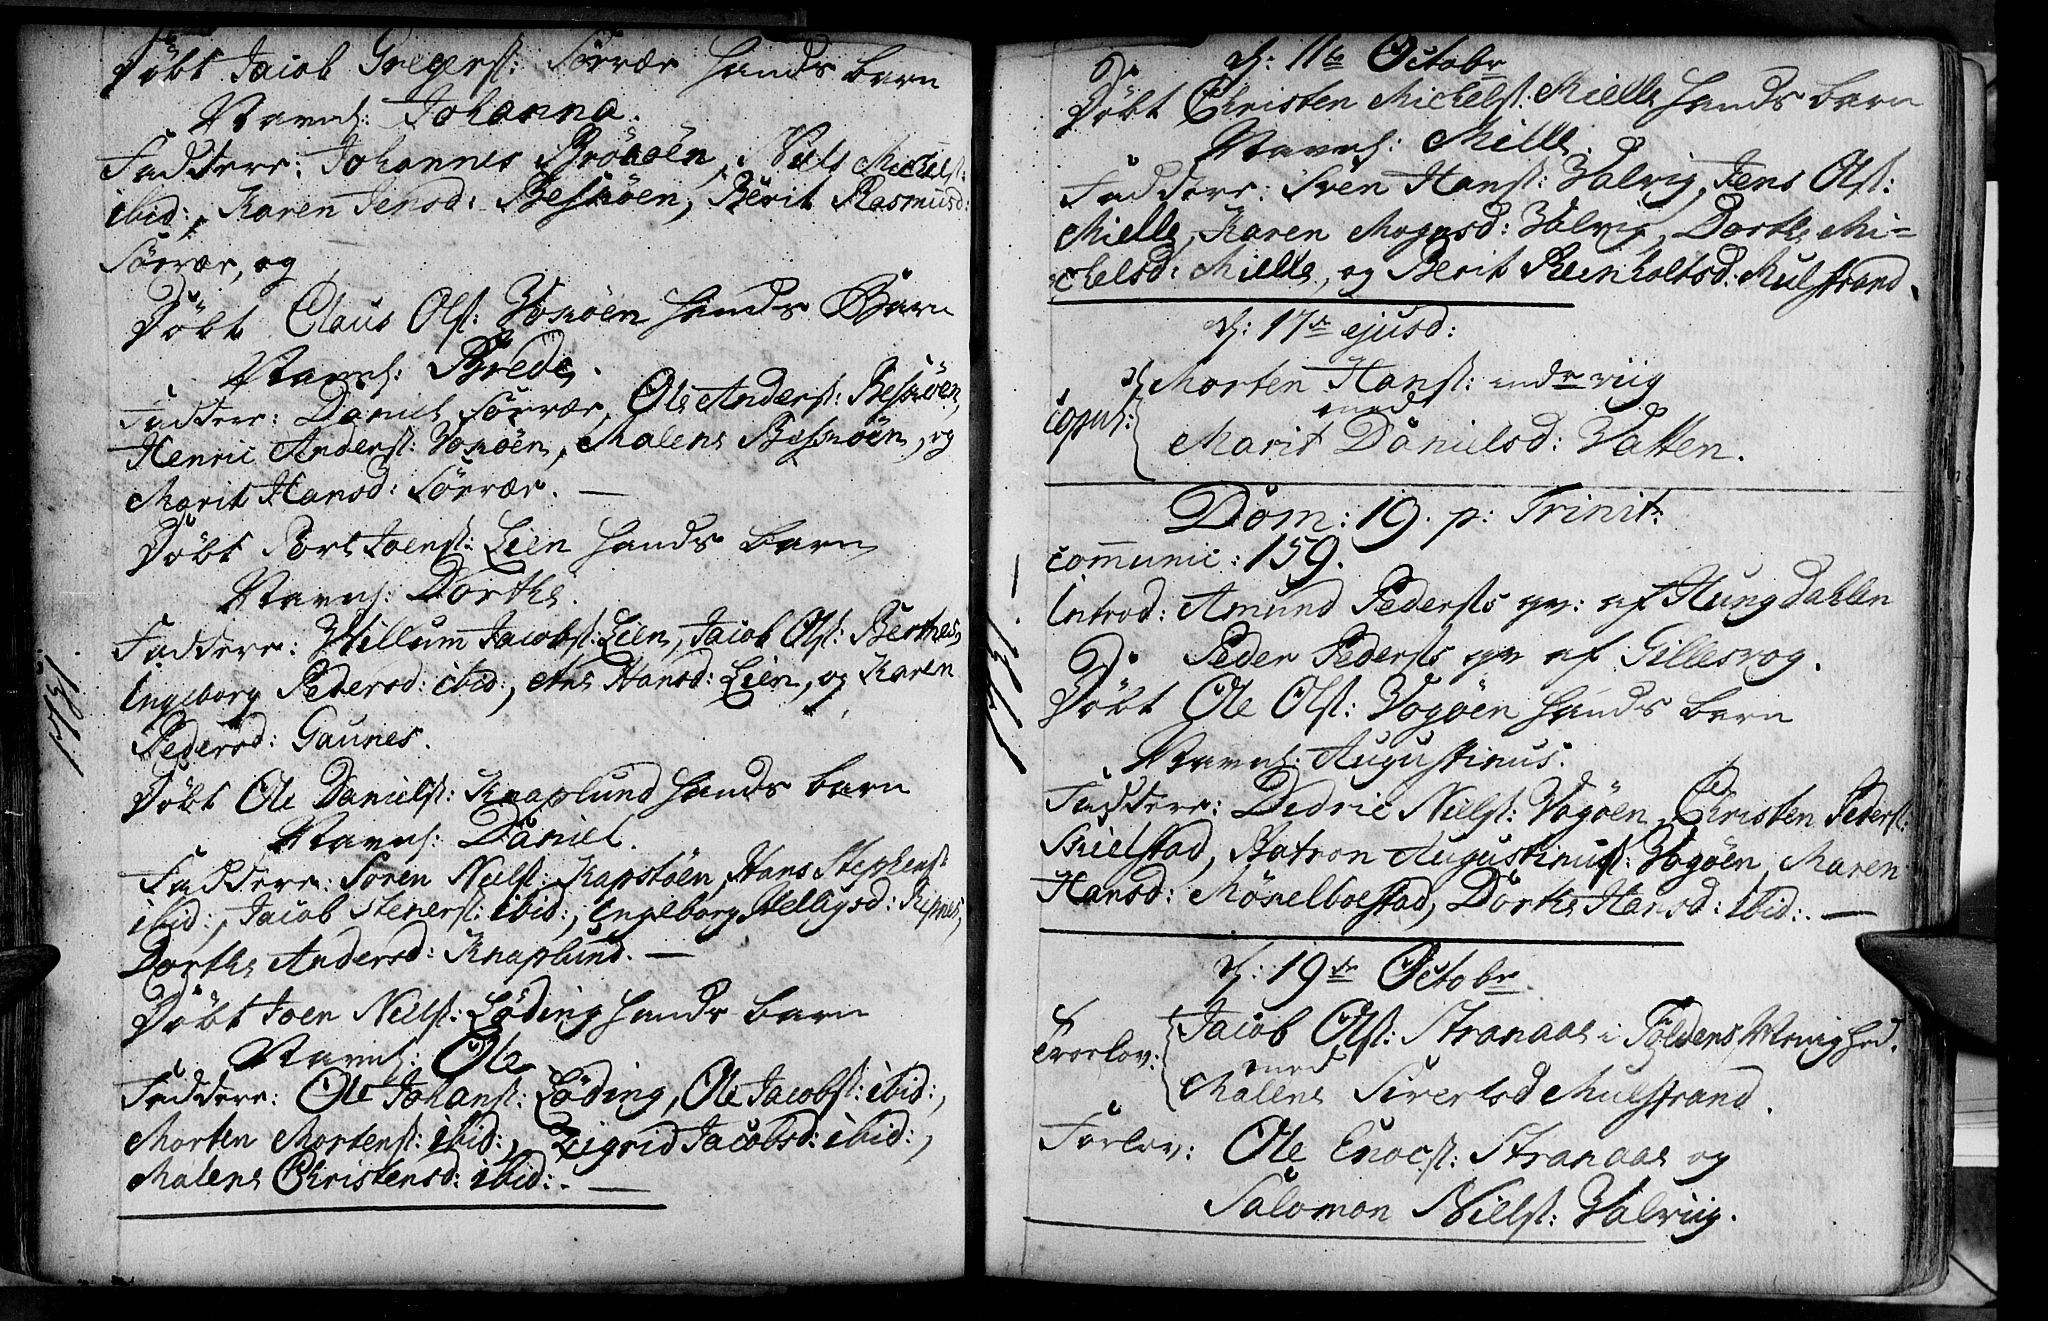 Døbt Jacob Gregerss: Sørvær hands barn
Navnl: Johanna.
Faddere: Johannes Niels Michelss:
ibid:, Karen Jensd: Berit Rasmusd:
Sørvær, og
Døbt Claus Olss: hands Barn
Navnl: Brede.
Faddere: Daniel Sørvær, Ole Anderss:
Henric Anderss: Malene og
Marit Hansd: Sørvær. —
Døbt Joenss: Lien hands barn
Navnl: Dorthe.
Faddere: Willum Jacobss: Lien, Jacob Olss:
Ingeborg Pedersd: ibid:, Ane Hansd: Lien, og Karen
Pedersd: Gaunes.
Døbt Ole Danielss: Knaplund hands barn
Navnl: Daniel.
Faddere: Søren Nielss: Kapstøen, Hans Stephenss:
ibid:, Jacob Stenerss: ibid:, Ingeborg Elligsd:
Dorthe Andersd: Knaplund. —
Døbt Joen Nielss: Løding hands barn
Navnl: Ole
Faddere: Ole Johanss: Løding, Ole Jacobss: ibid:,
Morten Mortenss: ibid:, Zigrid Jacobsd: ibid:,
Malene Christensd: ibid:. —
1751
1751
d: 11te Octobr
Døbt Christen Michelss: Mielle hands barn
Navnl: Mille.
Faddere: Sven Hanss: Valvig, Jens Olss:
Mielle, Karen Mognsd: Valvig, Dorthe Mi-
chelsd: Mielle, og Berit Reinholtsd: Mulstrand.
d: 17de ejusd:
Morten Hanss:
copul: med
Marit Danielsd: Vatten.
Dom: 19. p: Trinit:
communic: 159.
Introd: Amund Pederss qv: af Hungdahlen
Peder Pederss qv af Gillesvog.
Døbt Ole Olss: Vogøen hands barn
Navnl: Augustinus.
Faddere: Didric Nielss: Vogøen, Christen Pederss:
Skielstad, Augustinuss: Vogøen, Maren
Hansd: Dorthe Hansd: ibid:. —
d: 19de Octobr
Jacob Olss: Stranaae i Foldens Menighed.
Trorlov: med
Malene Sivertsd Mulstrand.
Forlov: Ole Enocss: Stranaae og
Salomon Nielss: Valviig.